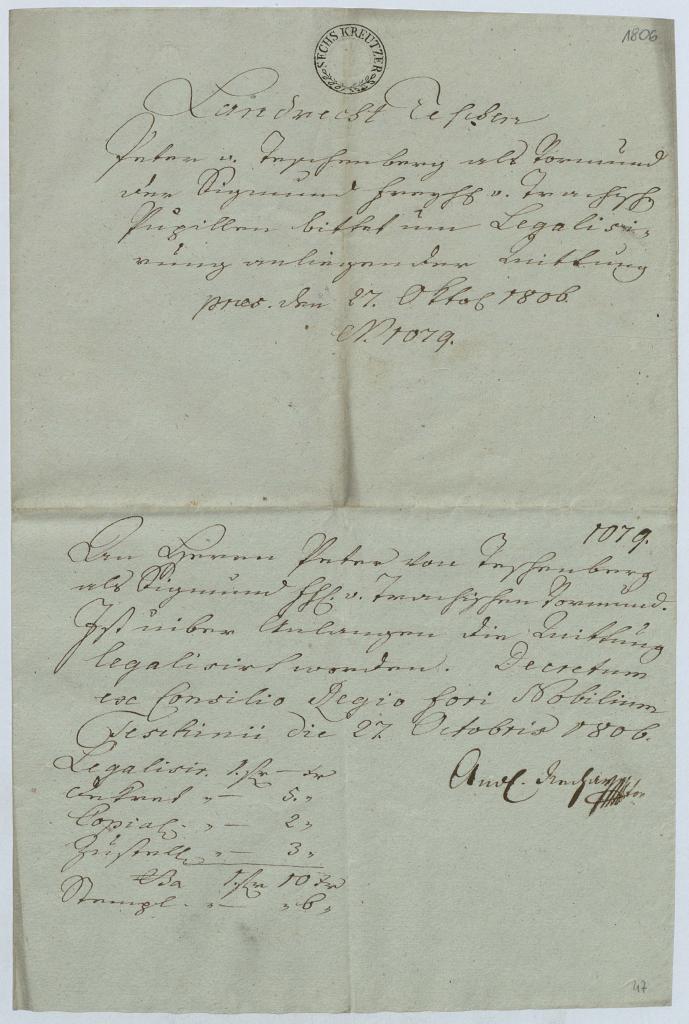 1806
SECHS KREUTZER
Landrecht Teschen
Peter v. Teschenberg als Vormund
der Sigmund Freyh v. Trachisch
Pupillen bittet um Legalisi-
rung anliegender Quittung
pres. den 27. Oktob 1806.
N. 1079.
1079.
An Herrn Peter von Teschenberg
als Sigmund Frh. v. Trachischen Vormund.
Ist über Anlangen die Quittung
legalisirt worden. Decretum
ex Consilio Regio fori Nobilium
Teschinii die 27. Octobris 1806.
Legalisir. 1 fr — xr
Dekret " — 5 "
Copial. " — 2 "
Zustell " — 3 "
1 fr 10 xr
Stempl. " — " 6 "
47